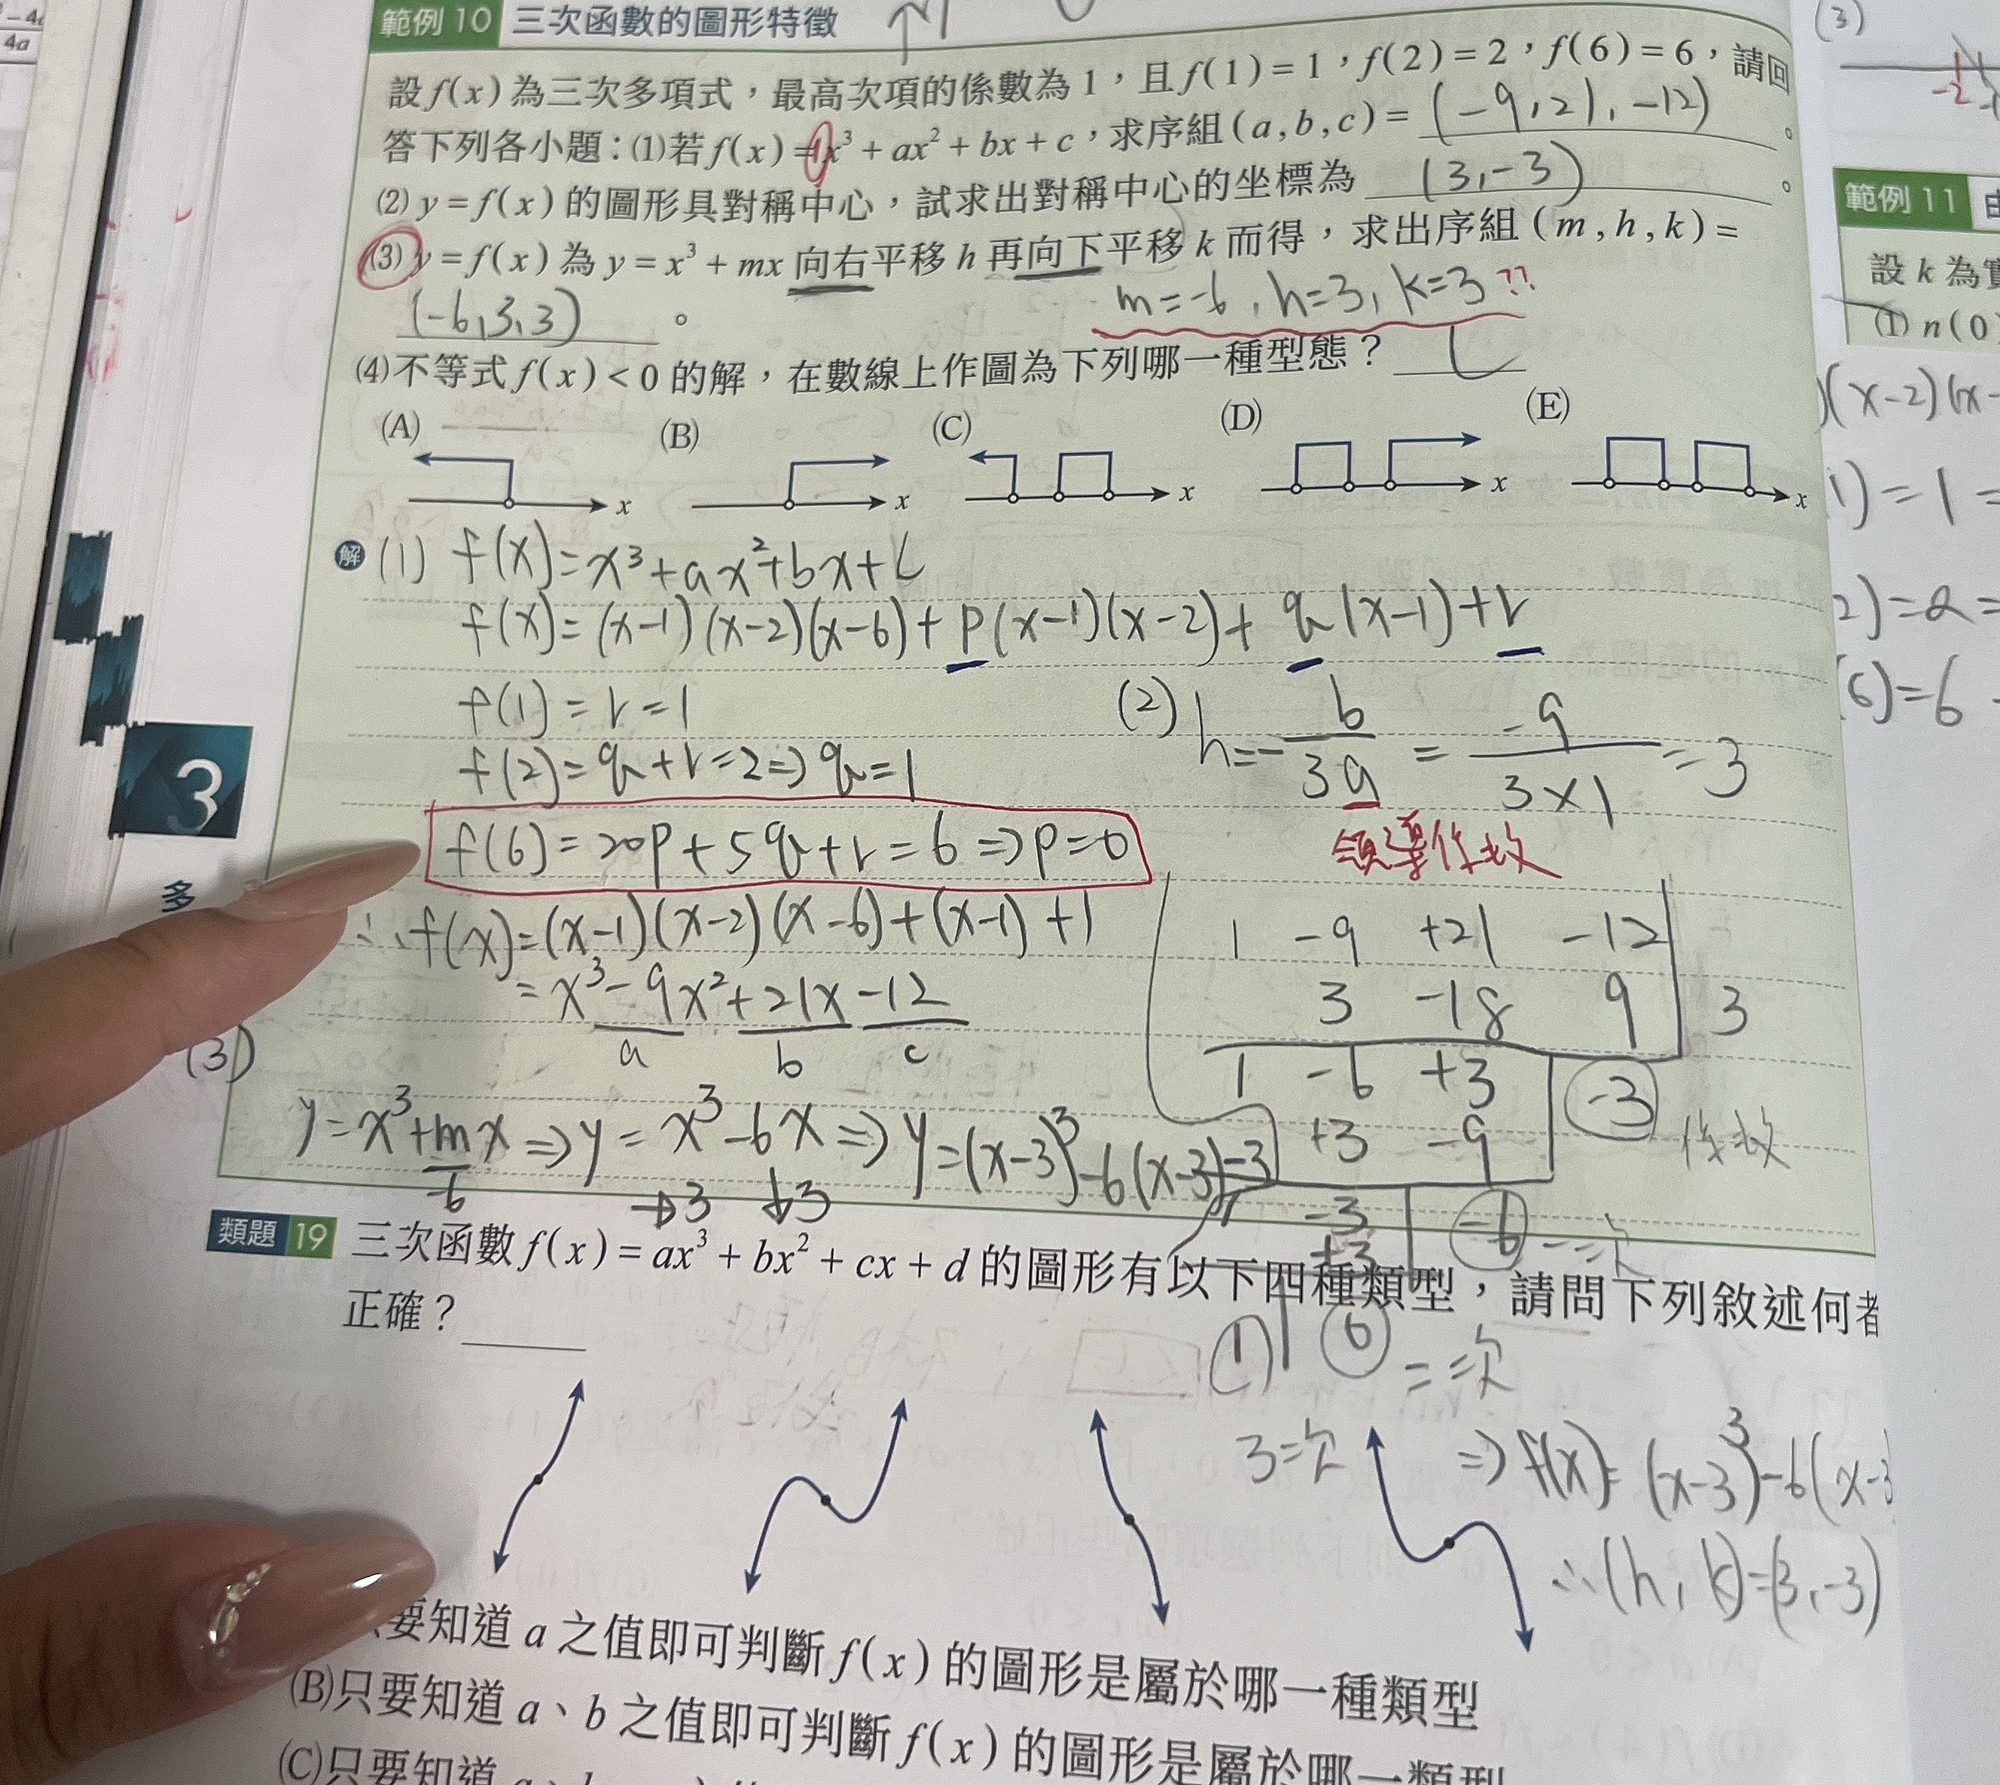 4a
範例 10 三次函數的圖形特徵
設 f(x) 為三次多項式,最高次項的係數為 1,且 f(1)=1,f(2)=2,f(6)=6,請回
答下列各小題:(1)若 f(x)=x³+ax²+bx+c,求序組(a,b,c)= (-9,21,-12) 。
(2) y=f(x) 的圖形具對稱中心,試求出對稱中心的坐標為 (3,-3) 。
(3) y=f(x) 為 y=x³+mx 向右平移 h 再向下平移 k 而得,求出序組(m,h,k)=
(-6,3,3) 。
m=-6,h=3,k=3??
(4)不等式 f(x)<0 的解,在數線上作圖為下列哪一種型態? C
(A) (B) (C) (D) (E)
x x x x x
解 (1) f(x)=x³+ax²+bx+c
f(x)=(x-1)(x-2)(x-6)+p(x-1)(x-2)+q(x-1)+r
f(1)=r=1
f(2)=q+r=2⇒q=1
f(6)=20p+5q+r=6⇒p=0
∴f(x)=(x-1)(x-2)(x-6)+(x-1)+1
=x³-9x²+21x-12
a b c
(2) h=-b/3a = -9/3×1 = 3
領導係數
1 -9 +21 -12
3 -18 9 3
1 -6 +3 -3
+3 -9 係數
-3 -6 一次
+3
1 0 =二次
3=次
⇒f(x)=(x-3)³-6(x-3
∴(h,k)=(3,-3)
(3)
y=x³+mx⇒y=x³-6x⇒y=(x-3)³-6(x-3)-3
-6 →3 ↓3
3
多
類題 19 三次函數 f(x)=ax³+bx²+cx+d 的圖形有以下四種類型,請問下列敘述何者
正確?
要知道 a 之值即可判斷 f(x) 的圖形是屬於哪一種類型
(B)只要知道 a、b 之值即可判斷 f(x) 的圖形是屬於哪一類型
(C)只要知道
(3)
-2
範例 11
設 k 為實
(1) n(0)
(x-2)(x-
1)=1=
2)=2=
(6)=6